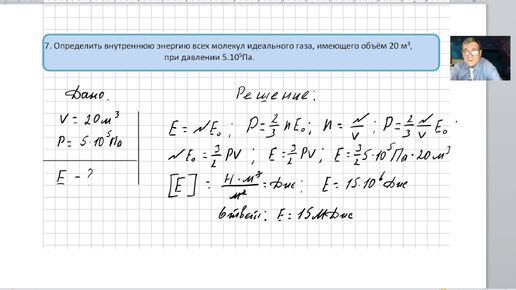 7. Определить внутреннюю энергию всех молекул идеального газа, имеющего объём 20 м³,
при давлении 5.10⁵Па.
Дано: Решение:
V = 20 м³
P = 5·10⁵ Па
E - ?
E = NE₀ ; P = 2/3 nE₀ ; n = N/V ; P = 2/3 N/V E₀ .
NE₀ = 3/2 PV ; E = 3/2 PV ; E = 3/2 5·10⁵ Па · 20 м³
[E] = Н·м³/м² = Дж ; E = 15·10⁶ Дж
Ответ: E = 15 МДж